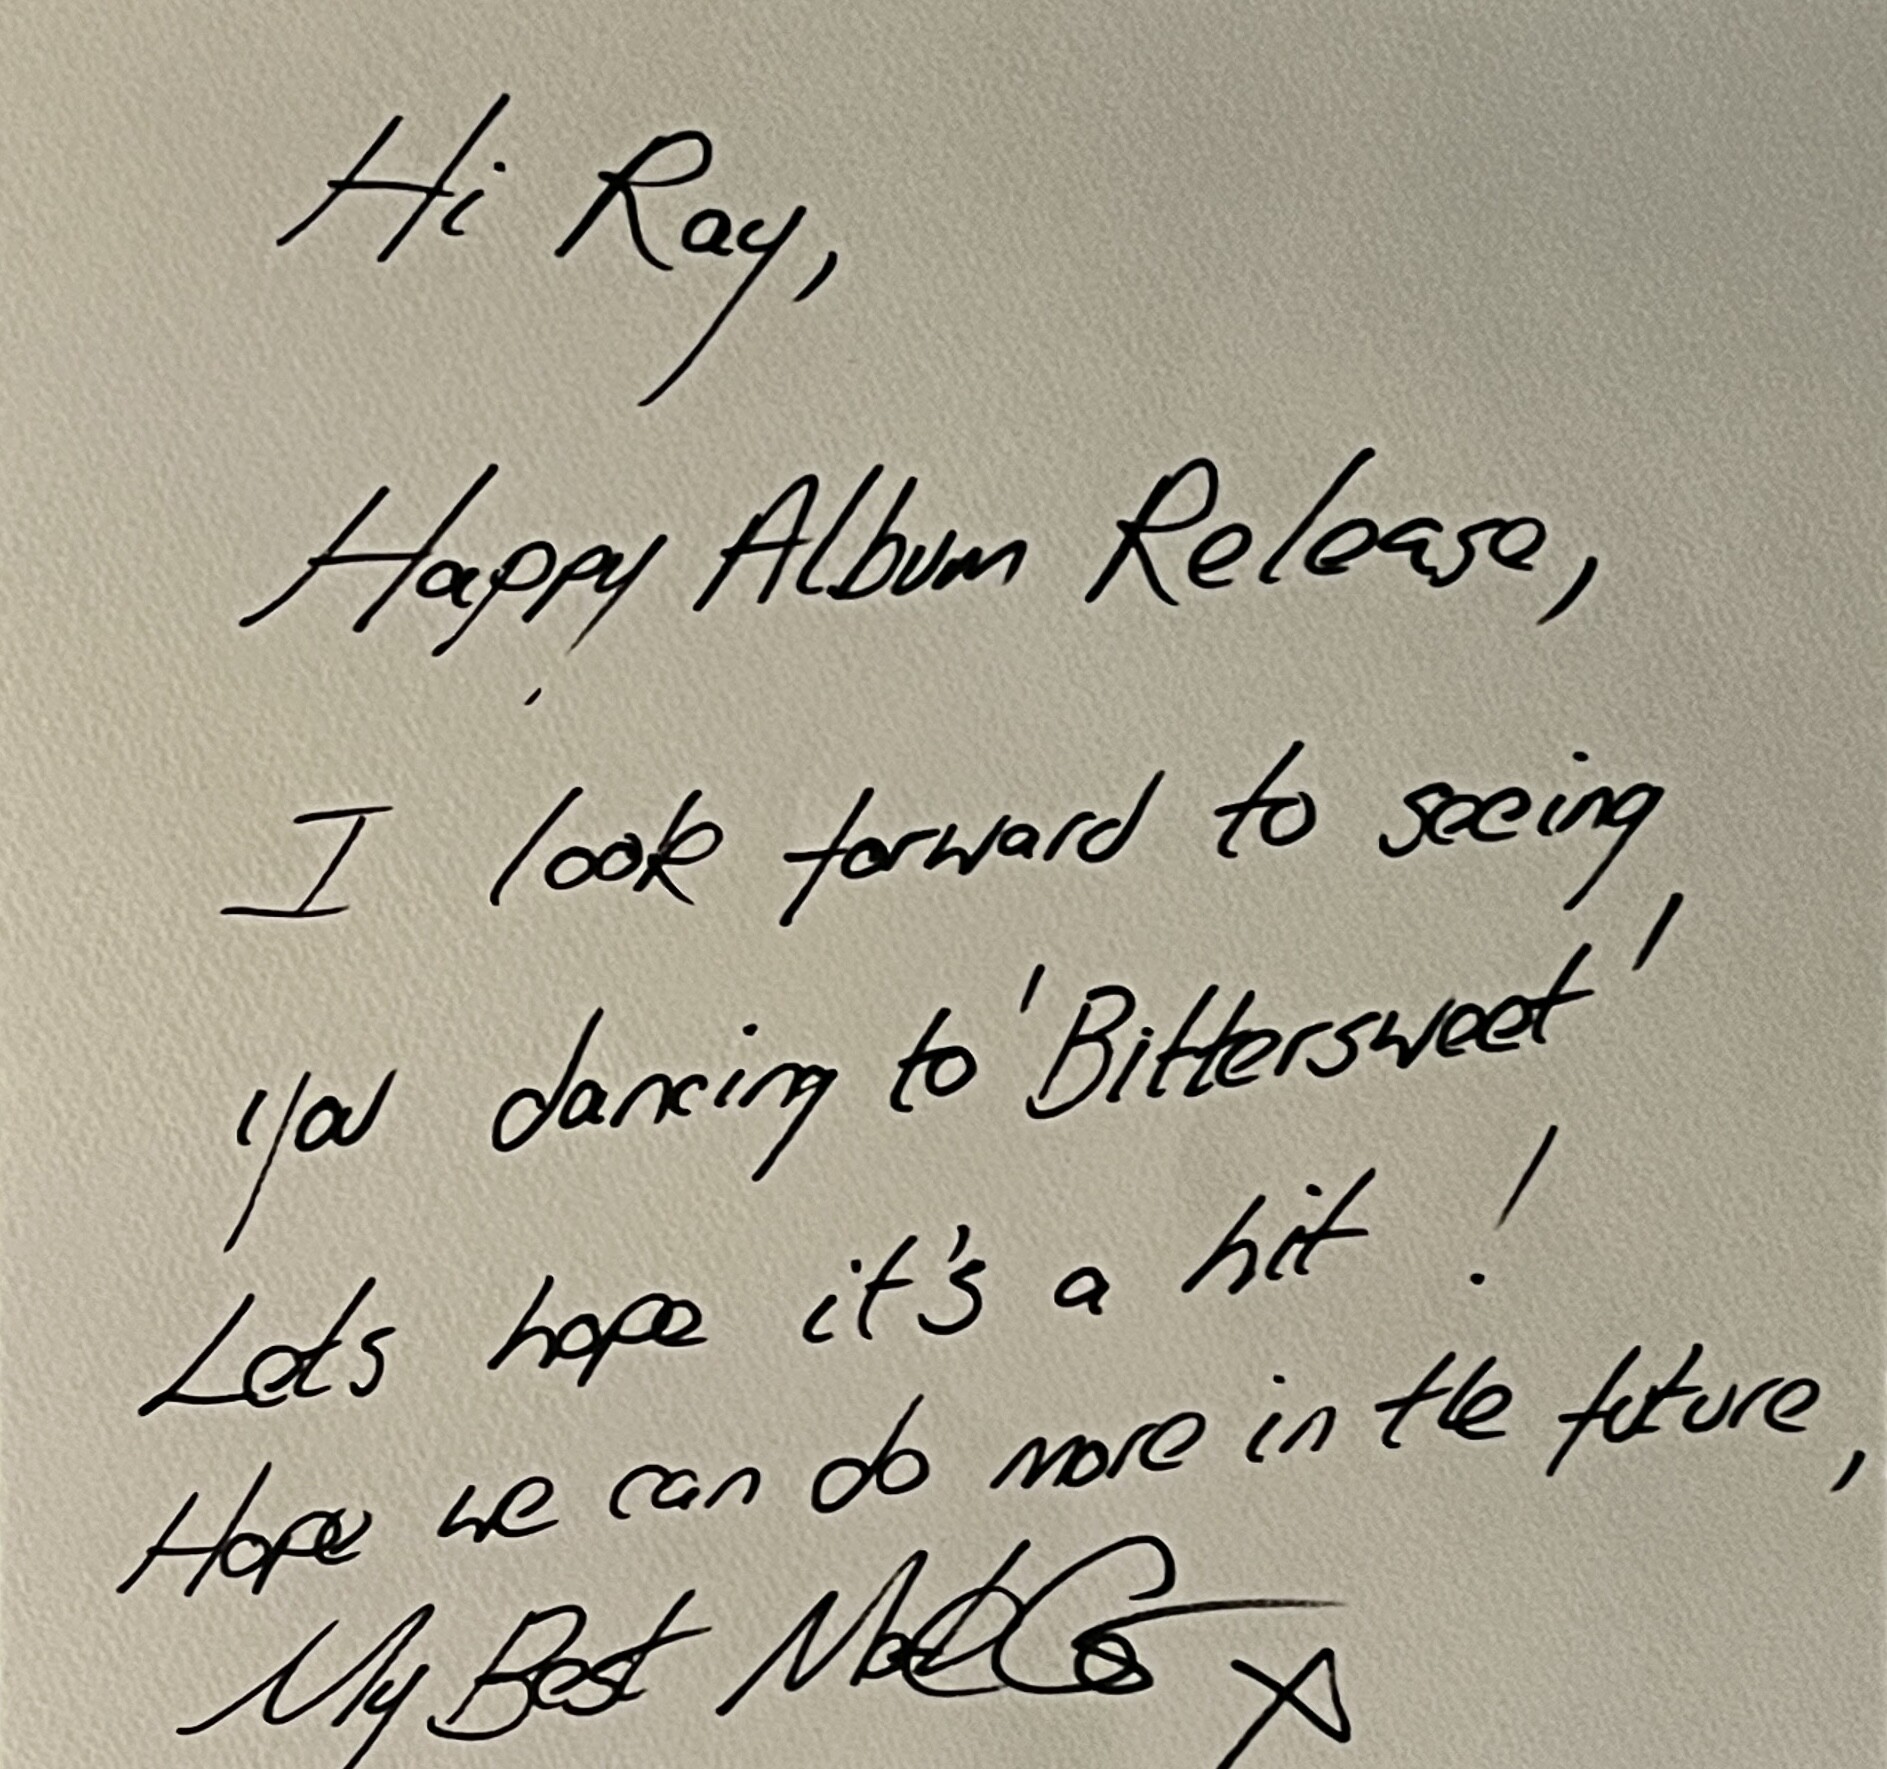 Hi Ray,
Happy Album Release,
I look forward to seeing
you dancing to 'Bittersweet'
Lets hope it's a hit !
Hope we can do more in the future,
My Best